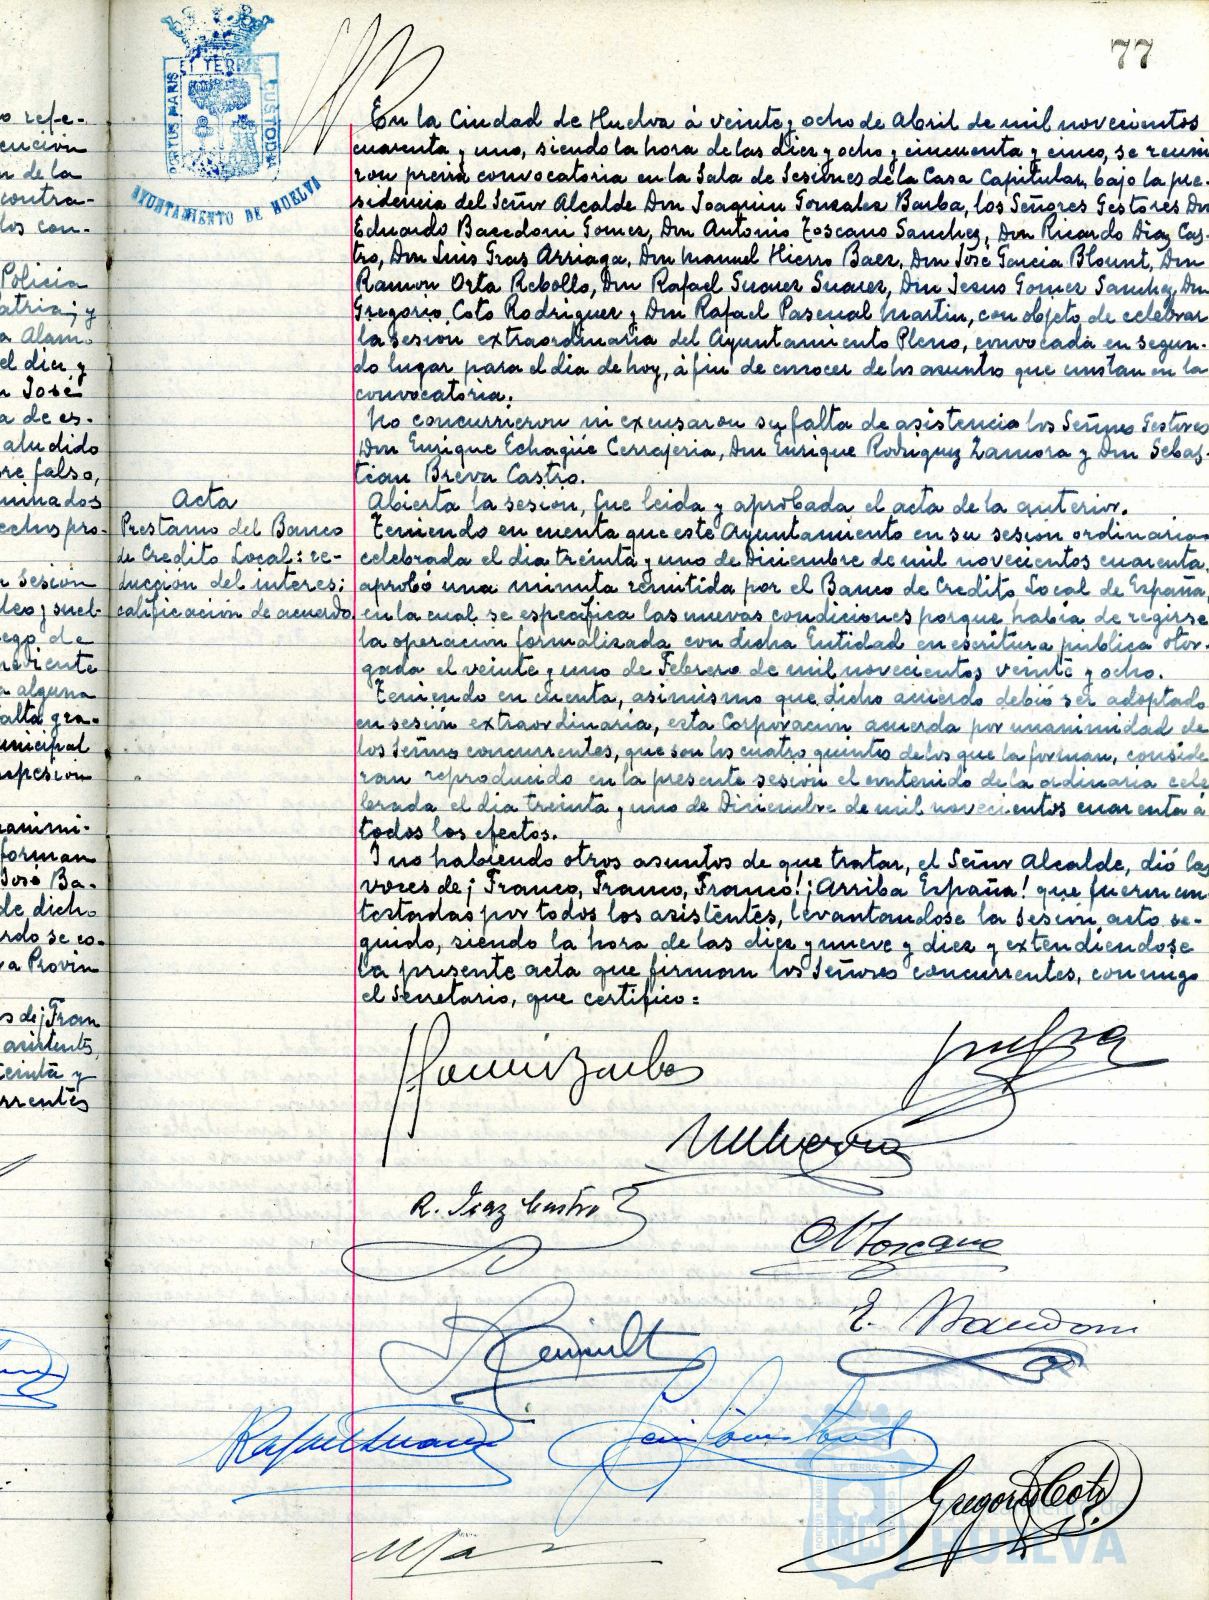 77
PORTUS MARIS
ET TERRE
CUSTODIA
AYUNTAMIENTO DE HUELVA
En la Ciudad de Huelva á veinte y ocho de Abril de mil novecientos
cuarenta y uno, siendo la hora de las diez y ocho y cincuenta y cinco, se reunie
ron previa convocatoria en la Sala de Sesiones de la Casa Capitular, bajo la pre-
sidencia del Señor Alcalde Don Joaquin Gonzalez Barba, los Señores Gestores Don
Eduardo Bacedoni Gomez, Don Antonio Toscano Sanchez, Don Ricardo Diaz Cas-
tro, Don Luis Gras Arriaga, Don Manuel Hierro Baez, Don José Garcia Blount, Don
Ramon Orta Rebollo, Don Rafael Suarez Suarez, Don Jesus Gomez Sanchez, Don
Gregorio Coto Rodriguez y Don Rafael Pascual Martin, con objeto de celebrar
la sesión extraordinaria del Ayuntamiento Pleno, convocada en segun-
do lugar para el dia de hoy, á fin de conocer de los asuntos que constan en la
convocatoria.
No concurrieron ni excusaron su falta de asistencia los Señores Gestores
Don Enrique Echagüe Cerrajeria, Don Enrique Rodriguez Zamora y Don Sebas-
tian Breva Castro.
Acta
Abierta la sesión, fue leida y aprobada el acta de la anterior.
Prestamo del Banco
de Credito Local: re-
ducción del interes;
calificación de acuerdo.
Teniendo en cuenta que este Ayuntamiento en su sesión ordinaria
celebrada el dia treinta y uno de Diciembre de mil novecientos cuarenta,
aprobó una minuta remitida por el Banco de Credito Local de España,
en la cual se especifica las nuevas condiciones porque habia de regirse
la operación formalizada con dicha Entidad en escritura publica otor-
gada el veinte y uno de Febrero de mil novecientos veinte y ocho.
Teniendo en cuenta, asimismo que dicho acuerdo debió ser adoptado
en sesión extraordinaria, esta Corporacion acuerda por unanimidad de
los Señores concurrentes, que son los cuatro quintos de los que la forman, conside
ran reproducido en la presente sesión el contenido de la ordinaria cele
brada el dia treinta y uno de Diciembre de mil novecientos cuarenta á
todos los efectos.
I no habiendo otros asuntos de que tratar, el Señor Alcalde, dió las
voces de ¡Franco, Franco, Franco! ¡Arriba España! que fueron con
testadas por todos los asistentes, levantandose la Sesión acto se-
guido, siendo la hora de las diez y nueve y diez y extendiendose
la presente acta que firman los Señores concurrentes, conmigo
el Secretario, que certifico:
R. Diaz Castro
A Toscano
Gregorio Coto
HUELVA